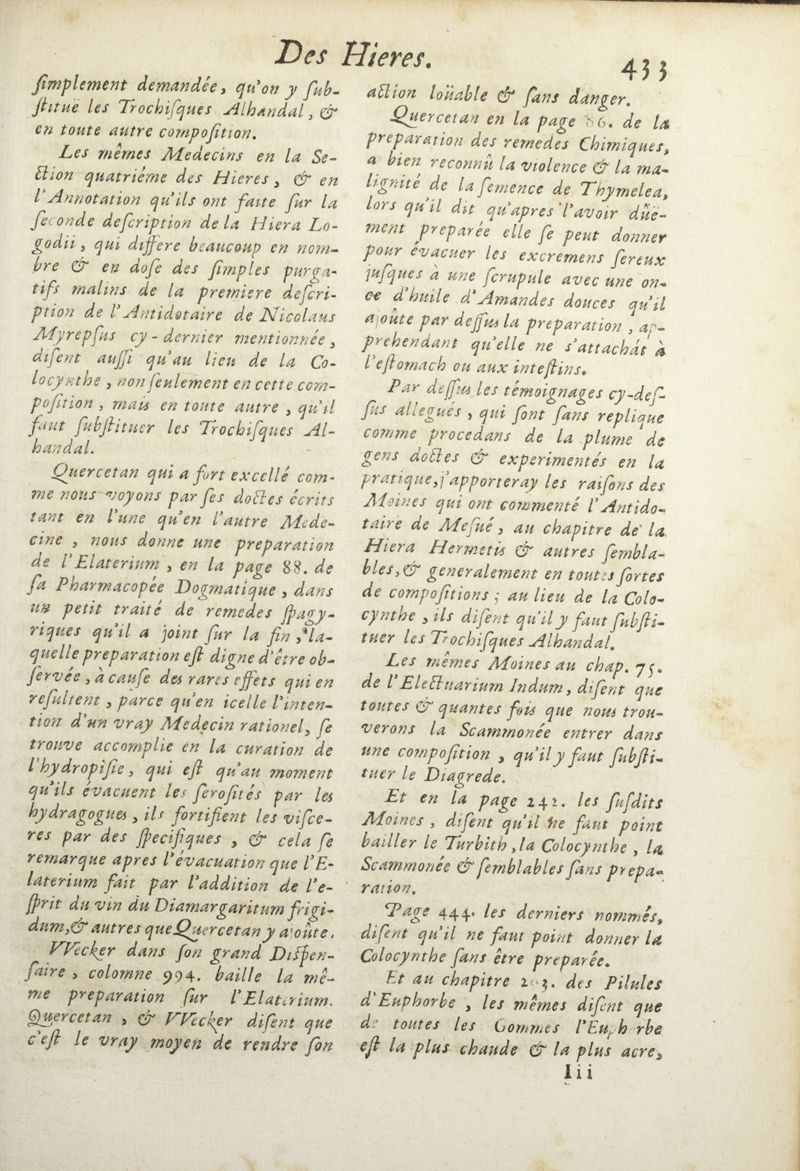 Des Hieres.
433
ſimplement demandée, qu'on y ſub-
ſtituë les Trochiſques Alhandal, &
en toute autre compoſition.
Les mêmes Medecins en la Se-
ction quatriéme des Hieres, & en
l'Annotation qu'ils ont faite ſur la
ſeconde deſcription de la Hiera Lo-
godii, qui differe beaucoup en nom-
bre & en doſe des ſimples purga-
tifs malins de la premiere deſcri-
ption de l'Antidotaire de Nicolaus
Myrepſus cy-dernier mentionnée,
diſent auſſi qu'au lieu de la Co-
locynthe, non ſeulement en cette com-
poſition, mais en toute autre, qu'il
faut ſubſtituer les Trochiſques Al-
handal.
Quercetan qui a fort excellé com-
me nous voyons par ſes doctes écrits
tant en l'une qu'en l'autre Mede-
cine, nous donne une preparation
de l'Elaterium, en la page 88. de
ſa Pharmacopée Dogmatique, dans
un petit traité de remedes ſpagy-
riques qu'il a joint ſur la fin, la-
quelle preparation eſt digne d'être ob-
ſervée, à cauſe des rares effets qui en
reſultent, parce qu'en icelle l'inten-
tion d'un vray Medecin rationel, ſe
trouve accomplie en la curation de
l'hydropiſie, qui eſt qu'au moment
qu'ils évacuent les ſeroſités par les
hydragogues, ils fortifient les viſce-
res par des ſpecifiques, & cela ſe
remarque apres l'évacuation que l'E-
laterium fait par l'addition de l'e-
ſprit du vin du Diamargaritum frigi-
dum, & autres que Quercetan y a'oûte.
VVecker dans ſon grand Diſpen-
ſaire, colomne 994. baille la mê-
me preparation ſur l'Elaterium.
Quercetan, & VVecker diſent que
c'eſt le vray moyen de rendre ſon
action loüable & ſans danger.
Quercetan en la page 86. de la
preparation des remedes Chimiques,
a bien reconnû la violence & la ma-
lignité de la ſemence de Thymelea,
lors qu'il dit qu'apres l'avoir düe-
ment preparée elle ſe peut donner
pour évacuer les excremens ſereux
juſques à une ſcrupule avec une on-
ce d'huile d'Amandes douces qu'il
ajoûte par deſſus la preparation, ap-
prehendant qu'elle ne s'attachât à
l'eſtomach ou aux inteſtins.
Par deſſus les témoignages cy-deſ-
ſus allegués, qui ſont ſans replique
comme procedans de la plume de
gens doctes & experimentés en la
pratique, j'apporteray les raiſons des
Moines qui ont commenté l'Antido-
taire de Meſué, au chapitre de la
Hiera Hermetis & autres ſembla-
bles, & generalement en toutes ſortes
de compoſitions; au lieu de la Colo-
cynthe, ils diſent qu'il y faut ſubſti-
tuer les Trochiſques Alhandal.
Les mêmes Moines au chap. 75.
de l'Electuarium Indum, diſent que
toutes & quantes fois que nous trou-
verons la Scammonée entrer dans
une compoſition, qu'il y faut ſubſti-
tuer le Diagrede.
Et en la page 242. les ſuſdits
Moines, diſent qu'il ne faut point
bailler le Turbith, la Colocynthe, la
Scammonée & ſemblables ſans prepa-
ration.
Page 444. les derniers nommés,
diſent qu'il ne faut point donner la
Colocynthe ſans être preparée.
Et au chapitre des Pilules
d'Euphorbe, les mêmes diſent que
de toutes les Gommes l'Euphorbe
eſt la plus chaude & la plus acre,
Iii